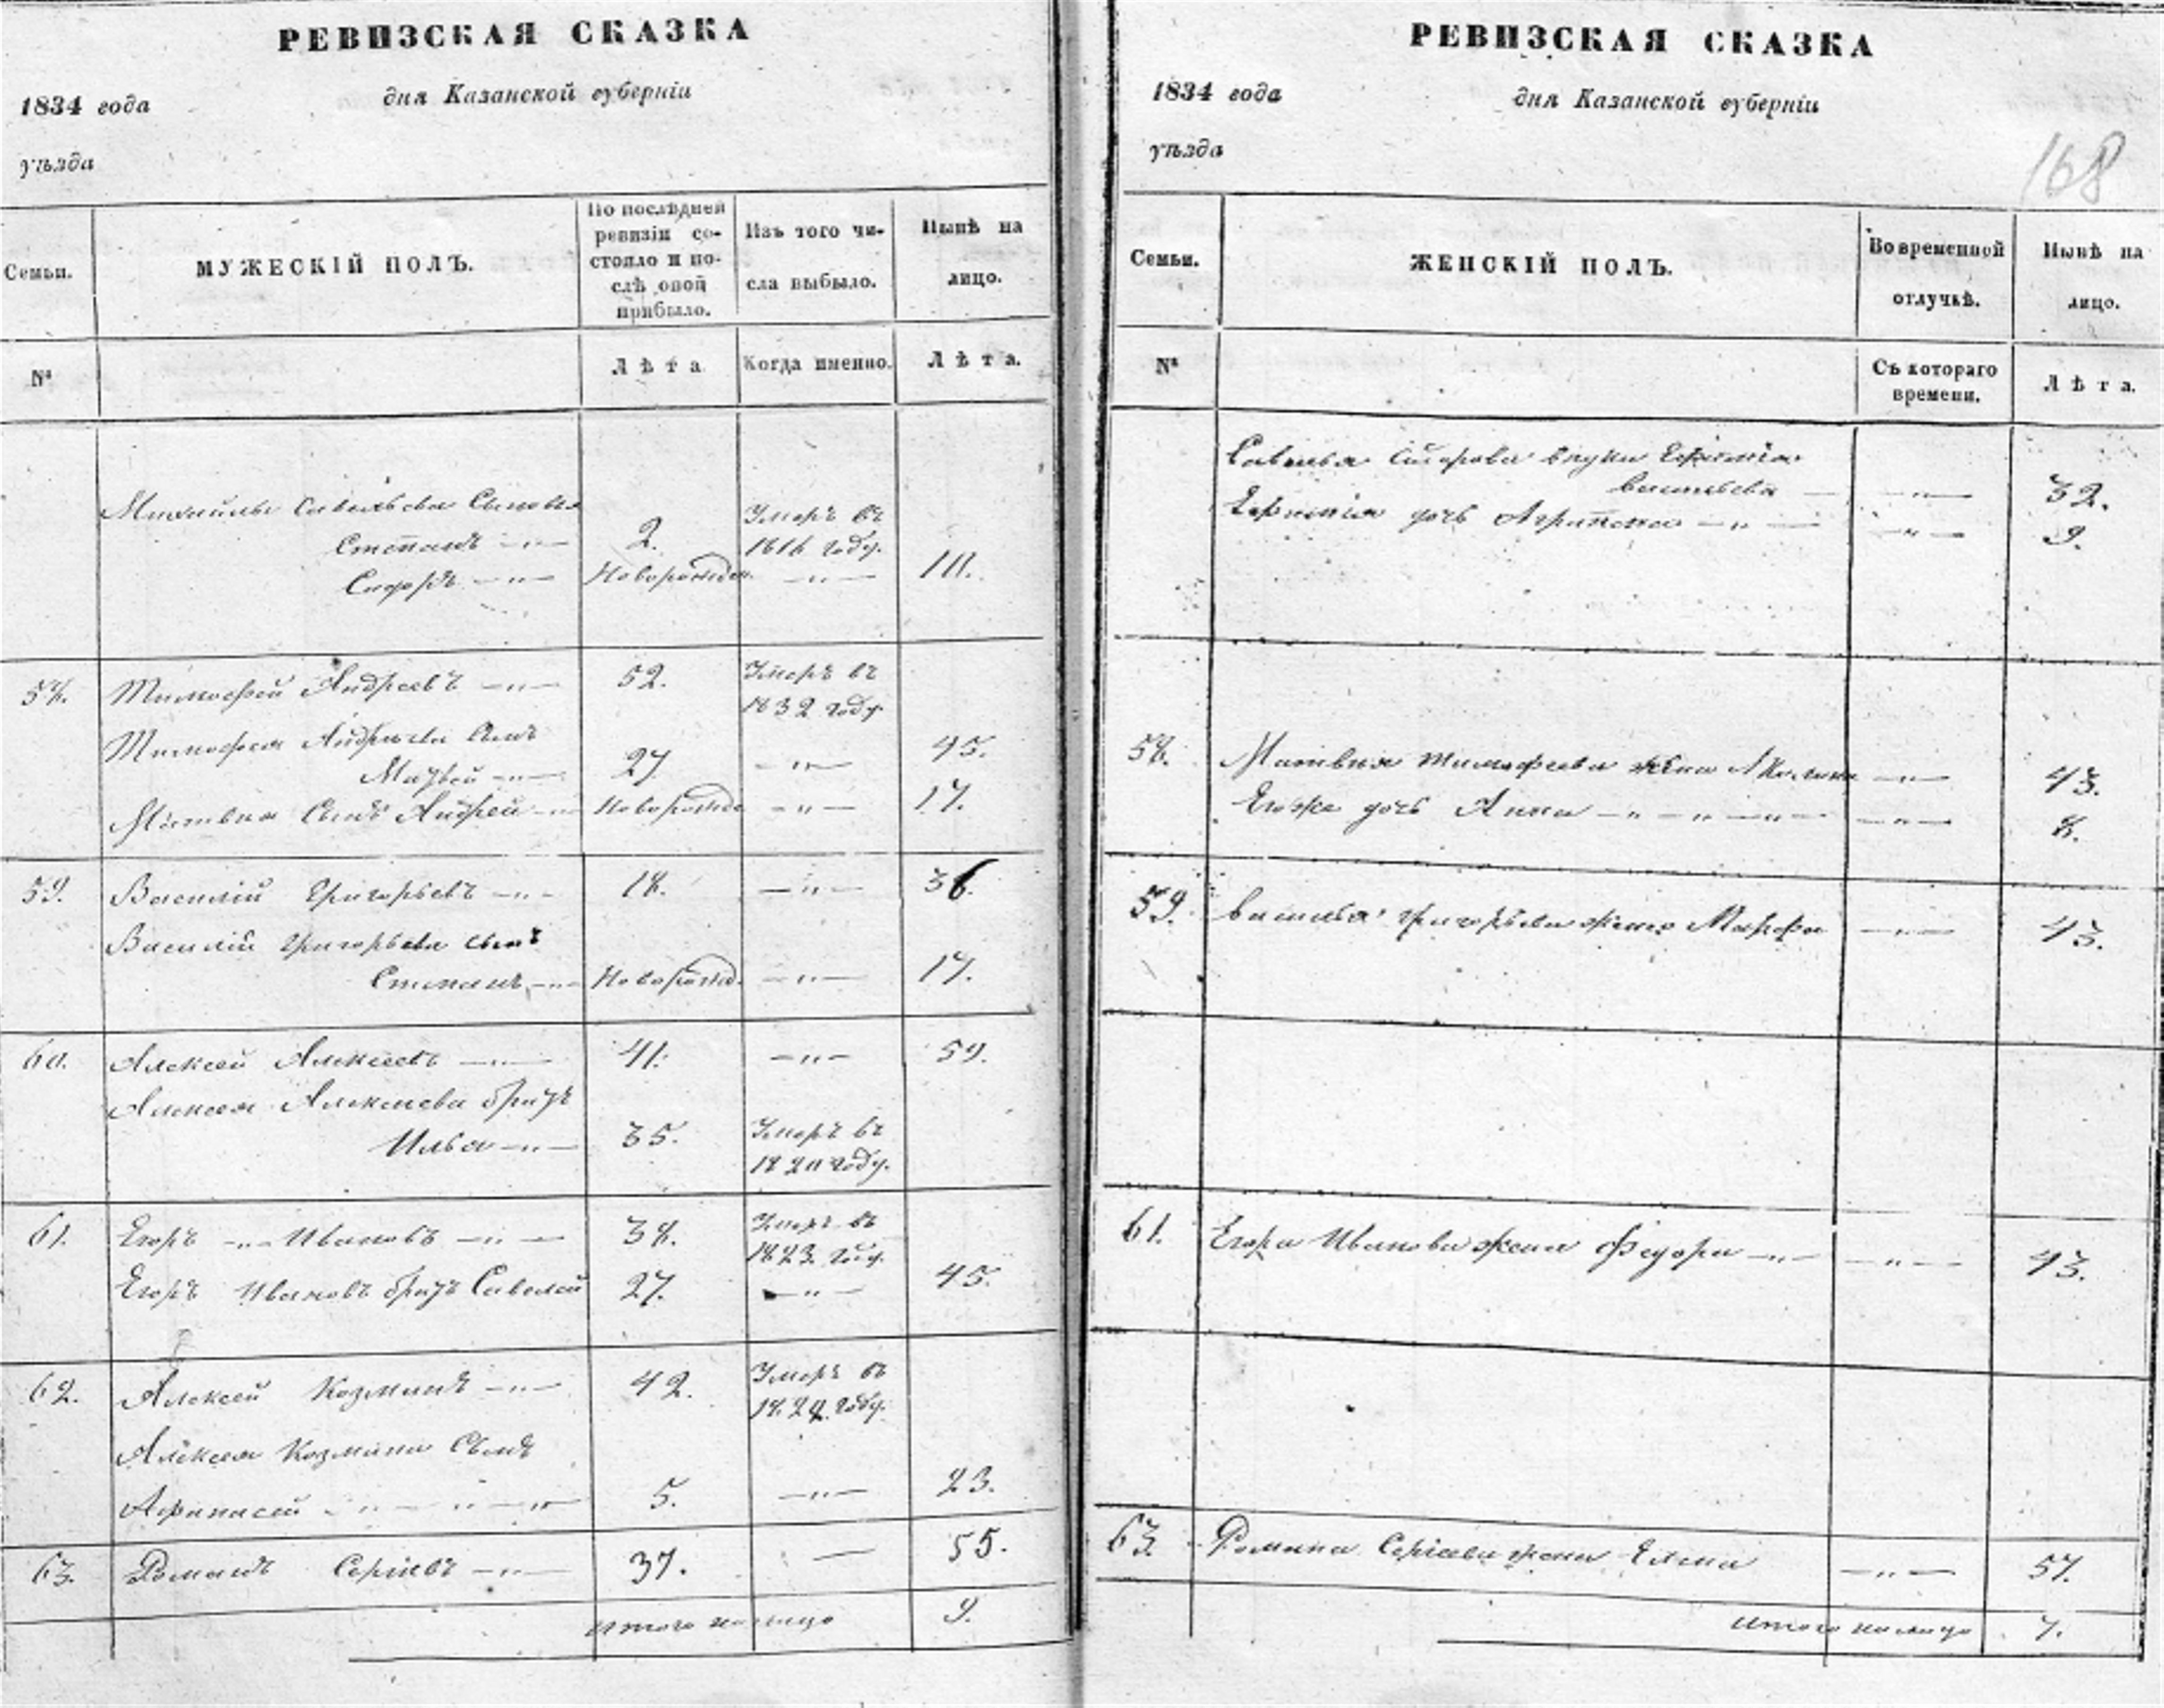 РЕВИЗСКАЯ СКАЗКА
1834 года
дня Казанской губерніи
уѣзда
Семьи.
МУЖЕСКІЙ ПОЛЪ.
По послѣдней
ревизіи со-
стояло и по-
слѣ оной
прибыло.
Изъ того чи-
сла выбыло.
Нынѣ на
лицо.
№
Лѣта
Когда именно.
Лѣта.
Савельева Сыновья
Степанъ 2. Умеръ въ
1816 году.
Новорожден.
58. Тимофей Андреевъ 52. Умеръ въ
1832 году
Тимофея Андреева Сынъ
Матвей 27 45.
Матвея Сынъ Андрей Новорожд 17.
59. Василій Григорьевъ 18. 36.
Василій Григорьева сынъ
Степанъ Новорожд. 17.
60. Алексей Алексеевъ 41. 59.
Алексея Алексеева братъ
Илья 35. Умеръ въ
1820 году.
61. Егоръ Ивановъ 38. Умеръ въ
1823 году.
Егоръ Ивановъ братъ Савелей 27. 45.
62. Алексей Козминъ 42. Умеръ въ
году.
Алексея Козмина Сынъ
Афанасей 5. 23.
63. Романъ Сергѣевъ 37. 55.
Итого налицо 9.
РЕВИЗСКАЯ СКАЗКА
1834 года
дня Казанской губерніи
уѣзда
168
Семьи.
ЖЕНСКІЙ ПОЛЪ.
Во временной
отлучкѣ.
Нынѣ на
лицо.
№
Съ котораго
времени.
Лѣта.
Васильева 32.
дочь Агрипена 9.
58. Матвея Тимофеева жена 43.
Егоже дочь Анна 8.
59. Василья Григорьева жена Марфа 43.
61. Егора Иванова жена Федора 43.
63. Романа Сергѣева жена Елена 57.
Итого налицо 7.